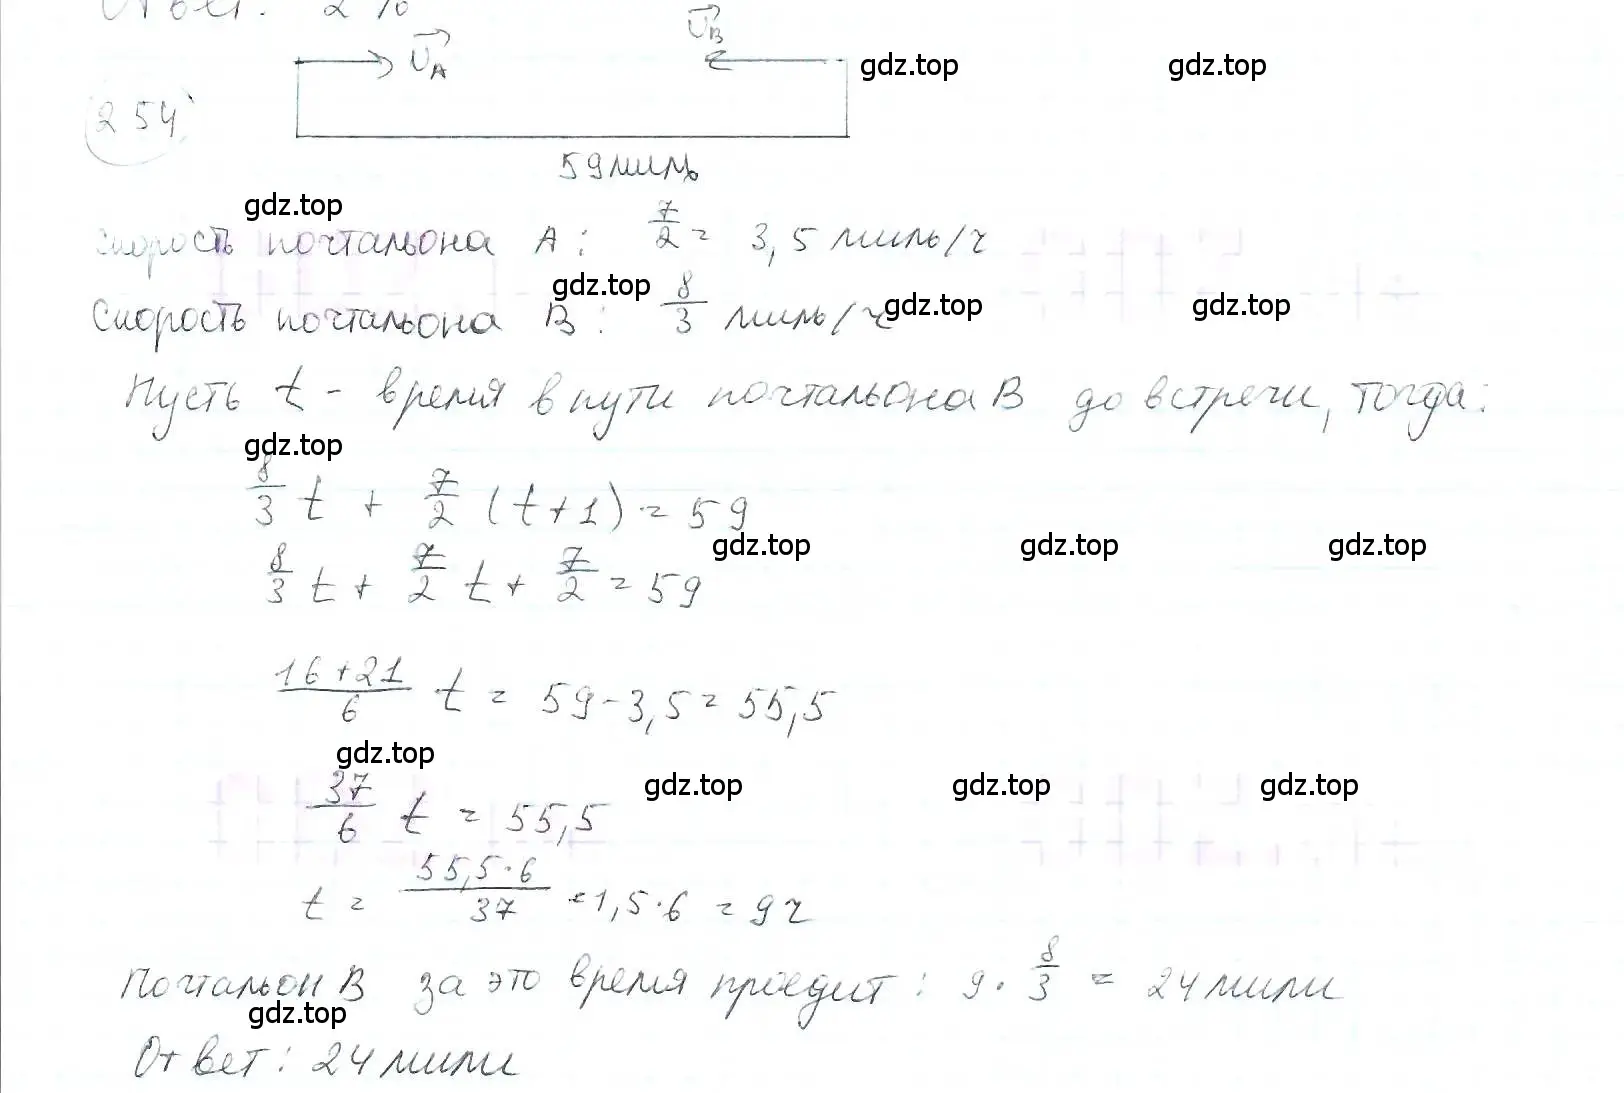 Ответ: 2%
v⃗_A v⃗_B
254
59 миль
gdz.top gdz.top
gdz.top
Скорость почтальона A: 7/2 = 3,5 миль/ч
gdz.top gdz.top gdz.top
Скорость почтальона B: 8/3 миль/ч
Пусть t - время в пути почтальона B до встречи, тогда:
gdz.top
8/3 t + 7/2 (t+1) = 59
gdz.top gdz.top gdz.top
8/3 t + 7/2 t + 7/2 = 59
(16+21)/6 t = 59-3,5 = 55,5
gdz.top
gdz.top gdz.top gdz.top
37/6 t = 55,5
t = (55,5·6)/37 = 1,5·6 = 9ч
Почтальон B за это время проедит: 9·8/3 = 24 мили
gdz.top
Ответ: 24 мили